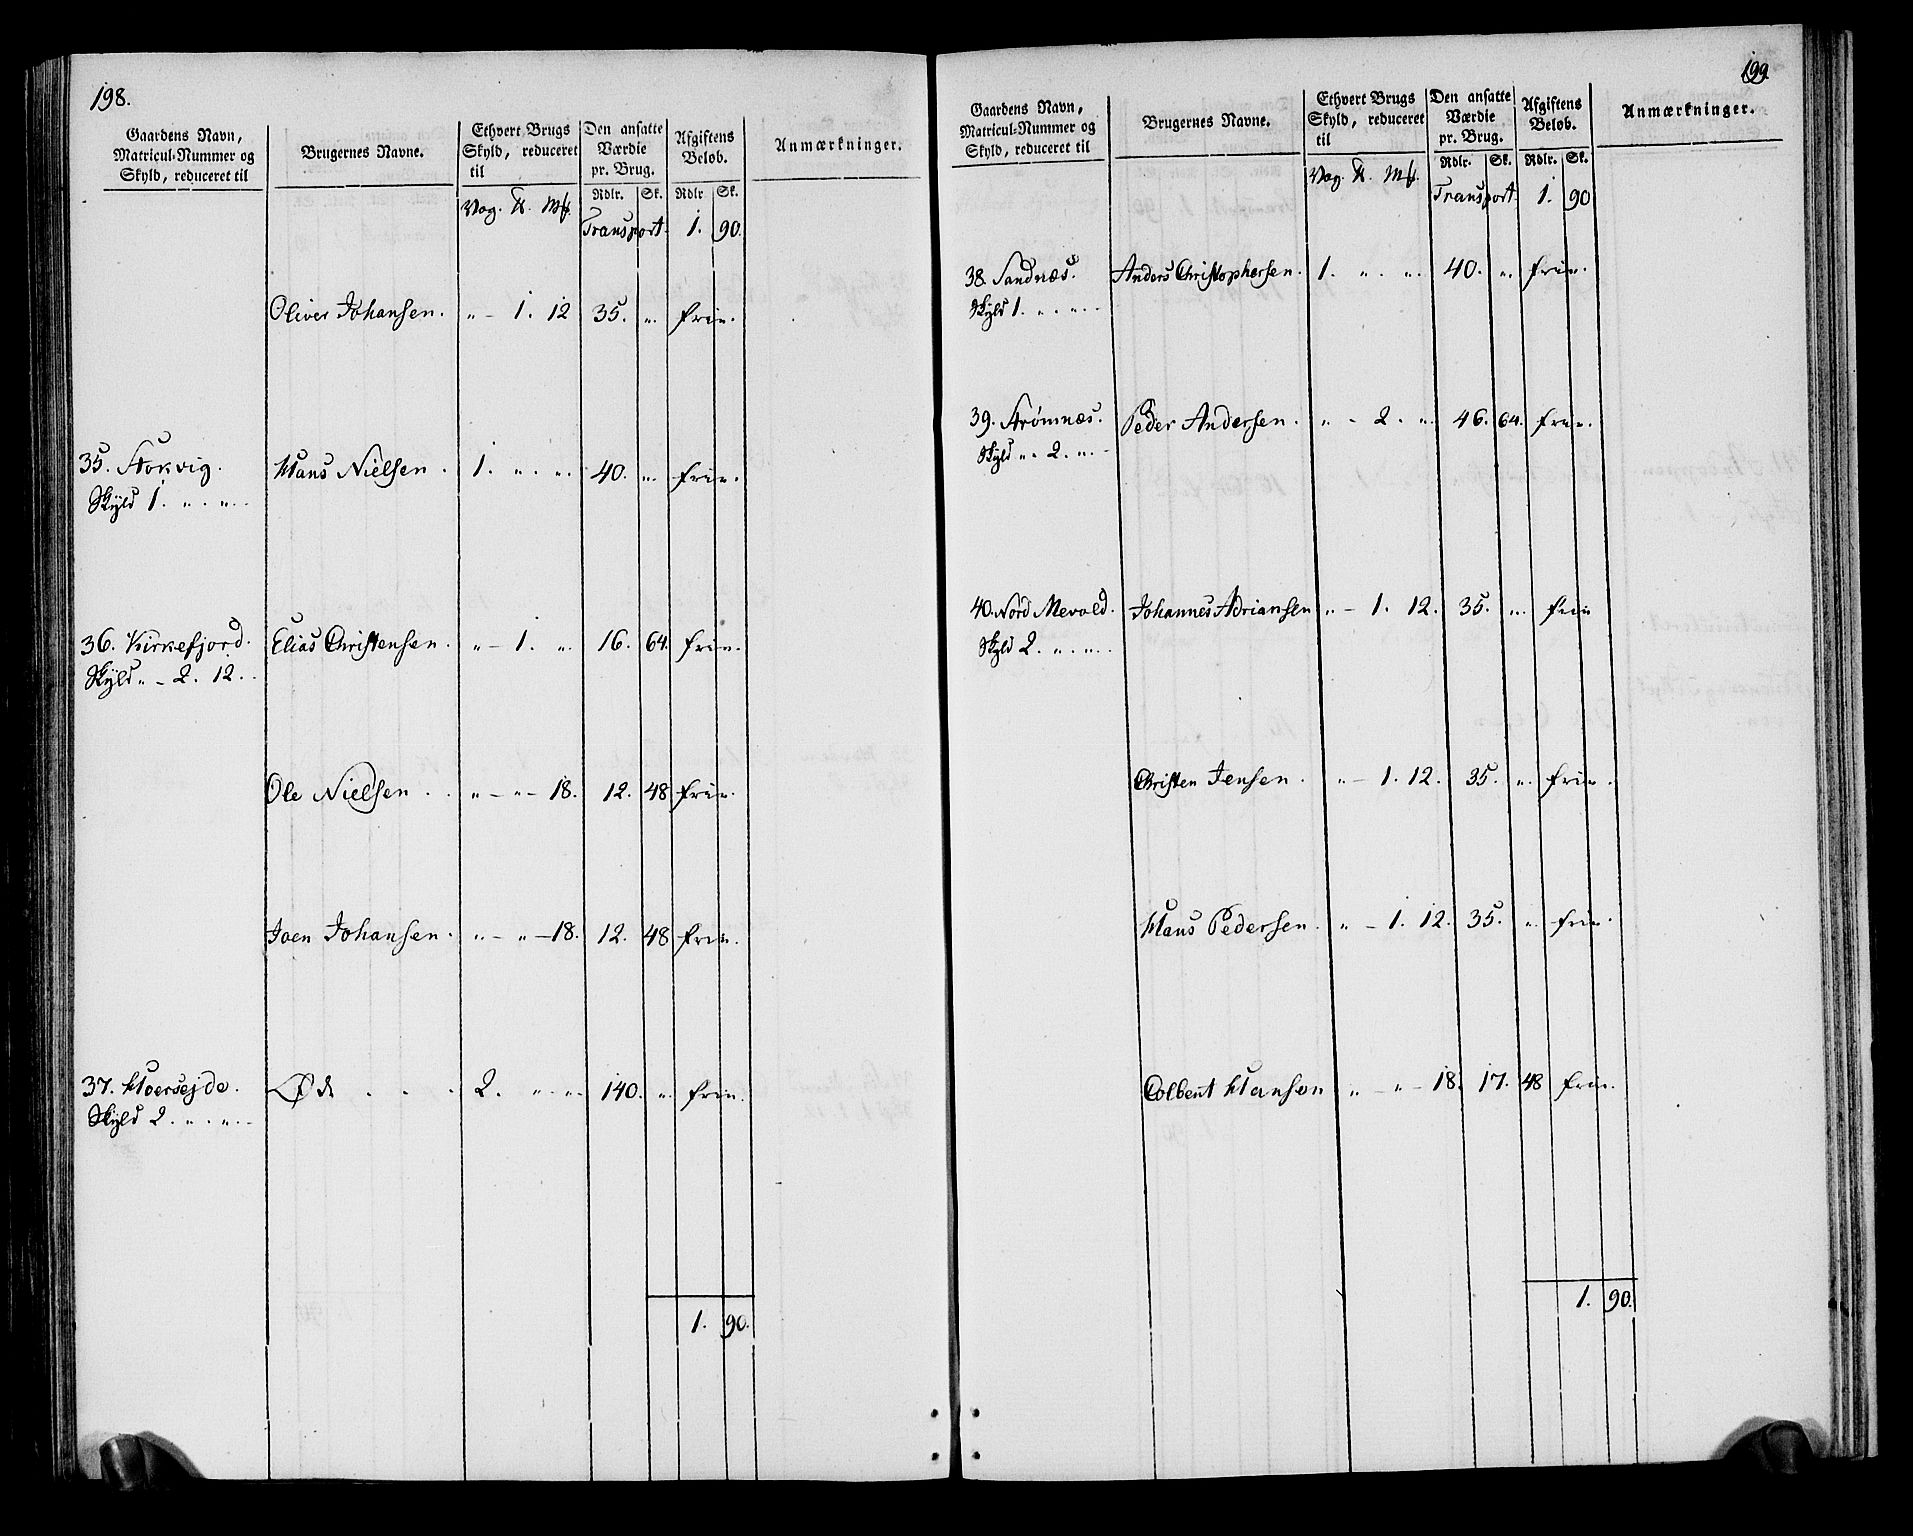 198.
Gaardens Navn, Matricul-Nummer og Skyld, reduceret til
Brugernes Navne.
Ethvert Brugs Skyld, reduceret til
Den ansatte Værdie pr. Brug.
Afgiftens Beløb.
Anmærkninger.
Rdlr. Sk. Rdlr Sk.
Vog. ℔. Mk.
Transport. 1. 90.
Oliver Johansen. „ – 1. 12 35. „ frie.
35. Stokvig. Hans Nielsen. 1. „ „ 40. „ frie.
Skyld 1. „ . „ . .
36. Kirkefjord. Elias Christensen. „ – 1. „ 16. 64. frie.
Skyld „ – 2. 12. .
Ole Nielsen . . „ – „ – 18. 12. 48 frie.
Joen Johansen. „ – „ – 18. 12. 48 frie.
37. Hoersejde. Øde . . . 2. „ „ 140. „ frie.
Skyld 2. „ . „ . .
1. 90.
199
Gaardens Navn, Matricul-Nummer og Skyld, reduceret til
Brugernes Navne.
Ethvert Brugs Skyld, reduceret til
Den ansatte Værdie pr. Brug.
Afgiftens Beløb.
Anmærkninger.
Rdlr. Sk. Rdlr. Sk.
Vog. ℔. Mk.
Transport. 1. 90
38. Sandnæs. Anders Christophersen. 1. „ „ 40. „ frie.
Skyld 1. „ . „ . .
39. Strømnæs. Peder Andersen. „ – 2. „ 46. 64. frie.
Skyld „ . 2. „ . –
40. Nord Mevold. Johannes Adriansen „ – 1. 12. 35. „ frie
Skyld 2. „ . „ . .
Christen Jensen. „ – 1. 12. 35. „ frie.
Hans Pedersen. „ – 1. 12. 35. „ frie.
Colbent Hansen „ – „ – 18. 17. 48 frie.
1. 90.